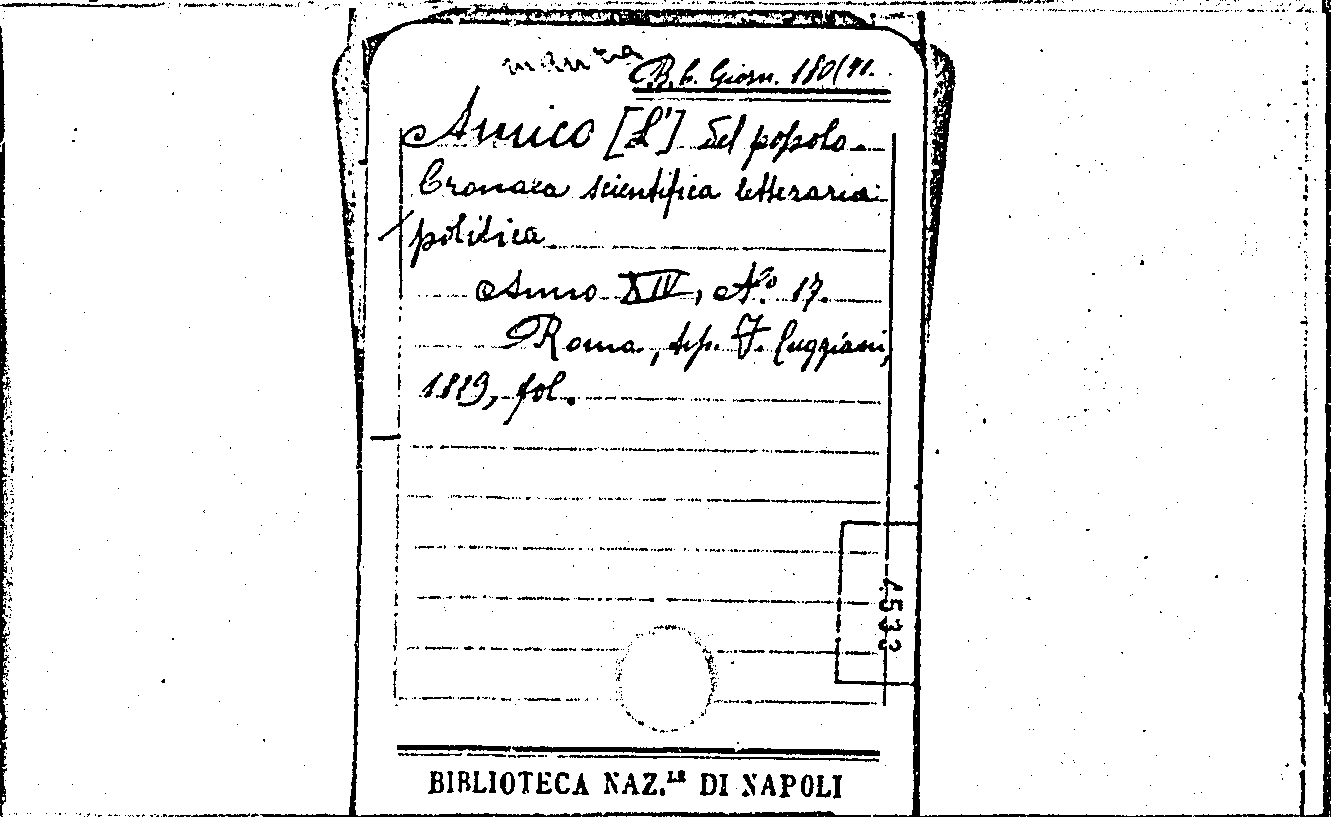 manca
B. b. Giorn. 180(41.
Amico [L'] del popolo.
Cronaca scientifica letteraria
politica
Anno XIV, N.º 17.
Roma, tip. F. Cuggiani,
fol.
4533
BIBLIOTECA NAZ.LE DI NAPOLI